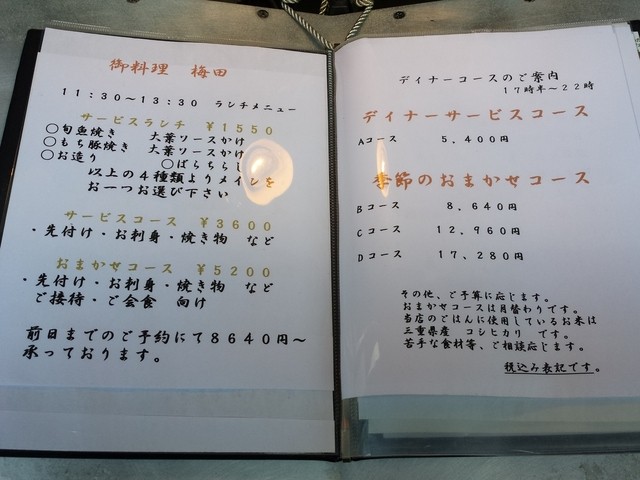 御料理 梅田
11:30~13:30 ランチメニュー
サービスランチ ¥1550
○旬魚焼き 大葉ソースかけ
○もち豚焼き 大葉ソースかけ
○お造り ○ばらちらし
以上の4種類よりメインを
お一つお選び下さい
サービスコース ¥3600
・先付け・お刺身・焼き物 など
おまかせコース ¥5200
・先付け・お刺身・焼き物 など
ご接待・ご会食 向け
前日までのご予約にて8640円~
承っております。
ディナーコースのご案内
17時半~22時
ディナーサービスコース
Aコース 5,400円
季節のおまかせコース
Bコース 8,640円
Cコース 12,960円
Dコース 17,280円
その他、ご予算に応じます。
おまかせコースは月替わりです。
当店のごはんに使用しているお米は
三重県産 コシヒカリ です。
苦手な食材等、ご相談応じます。
税込み表記です。